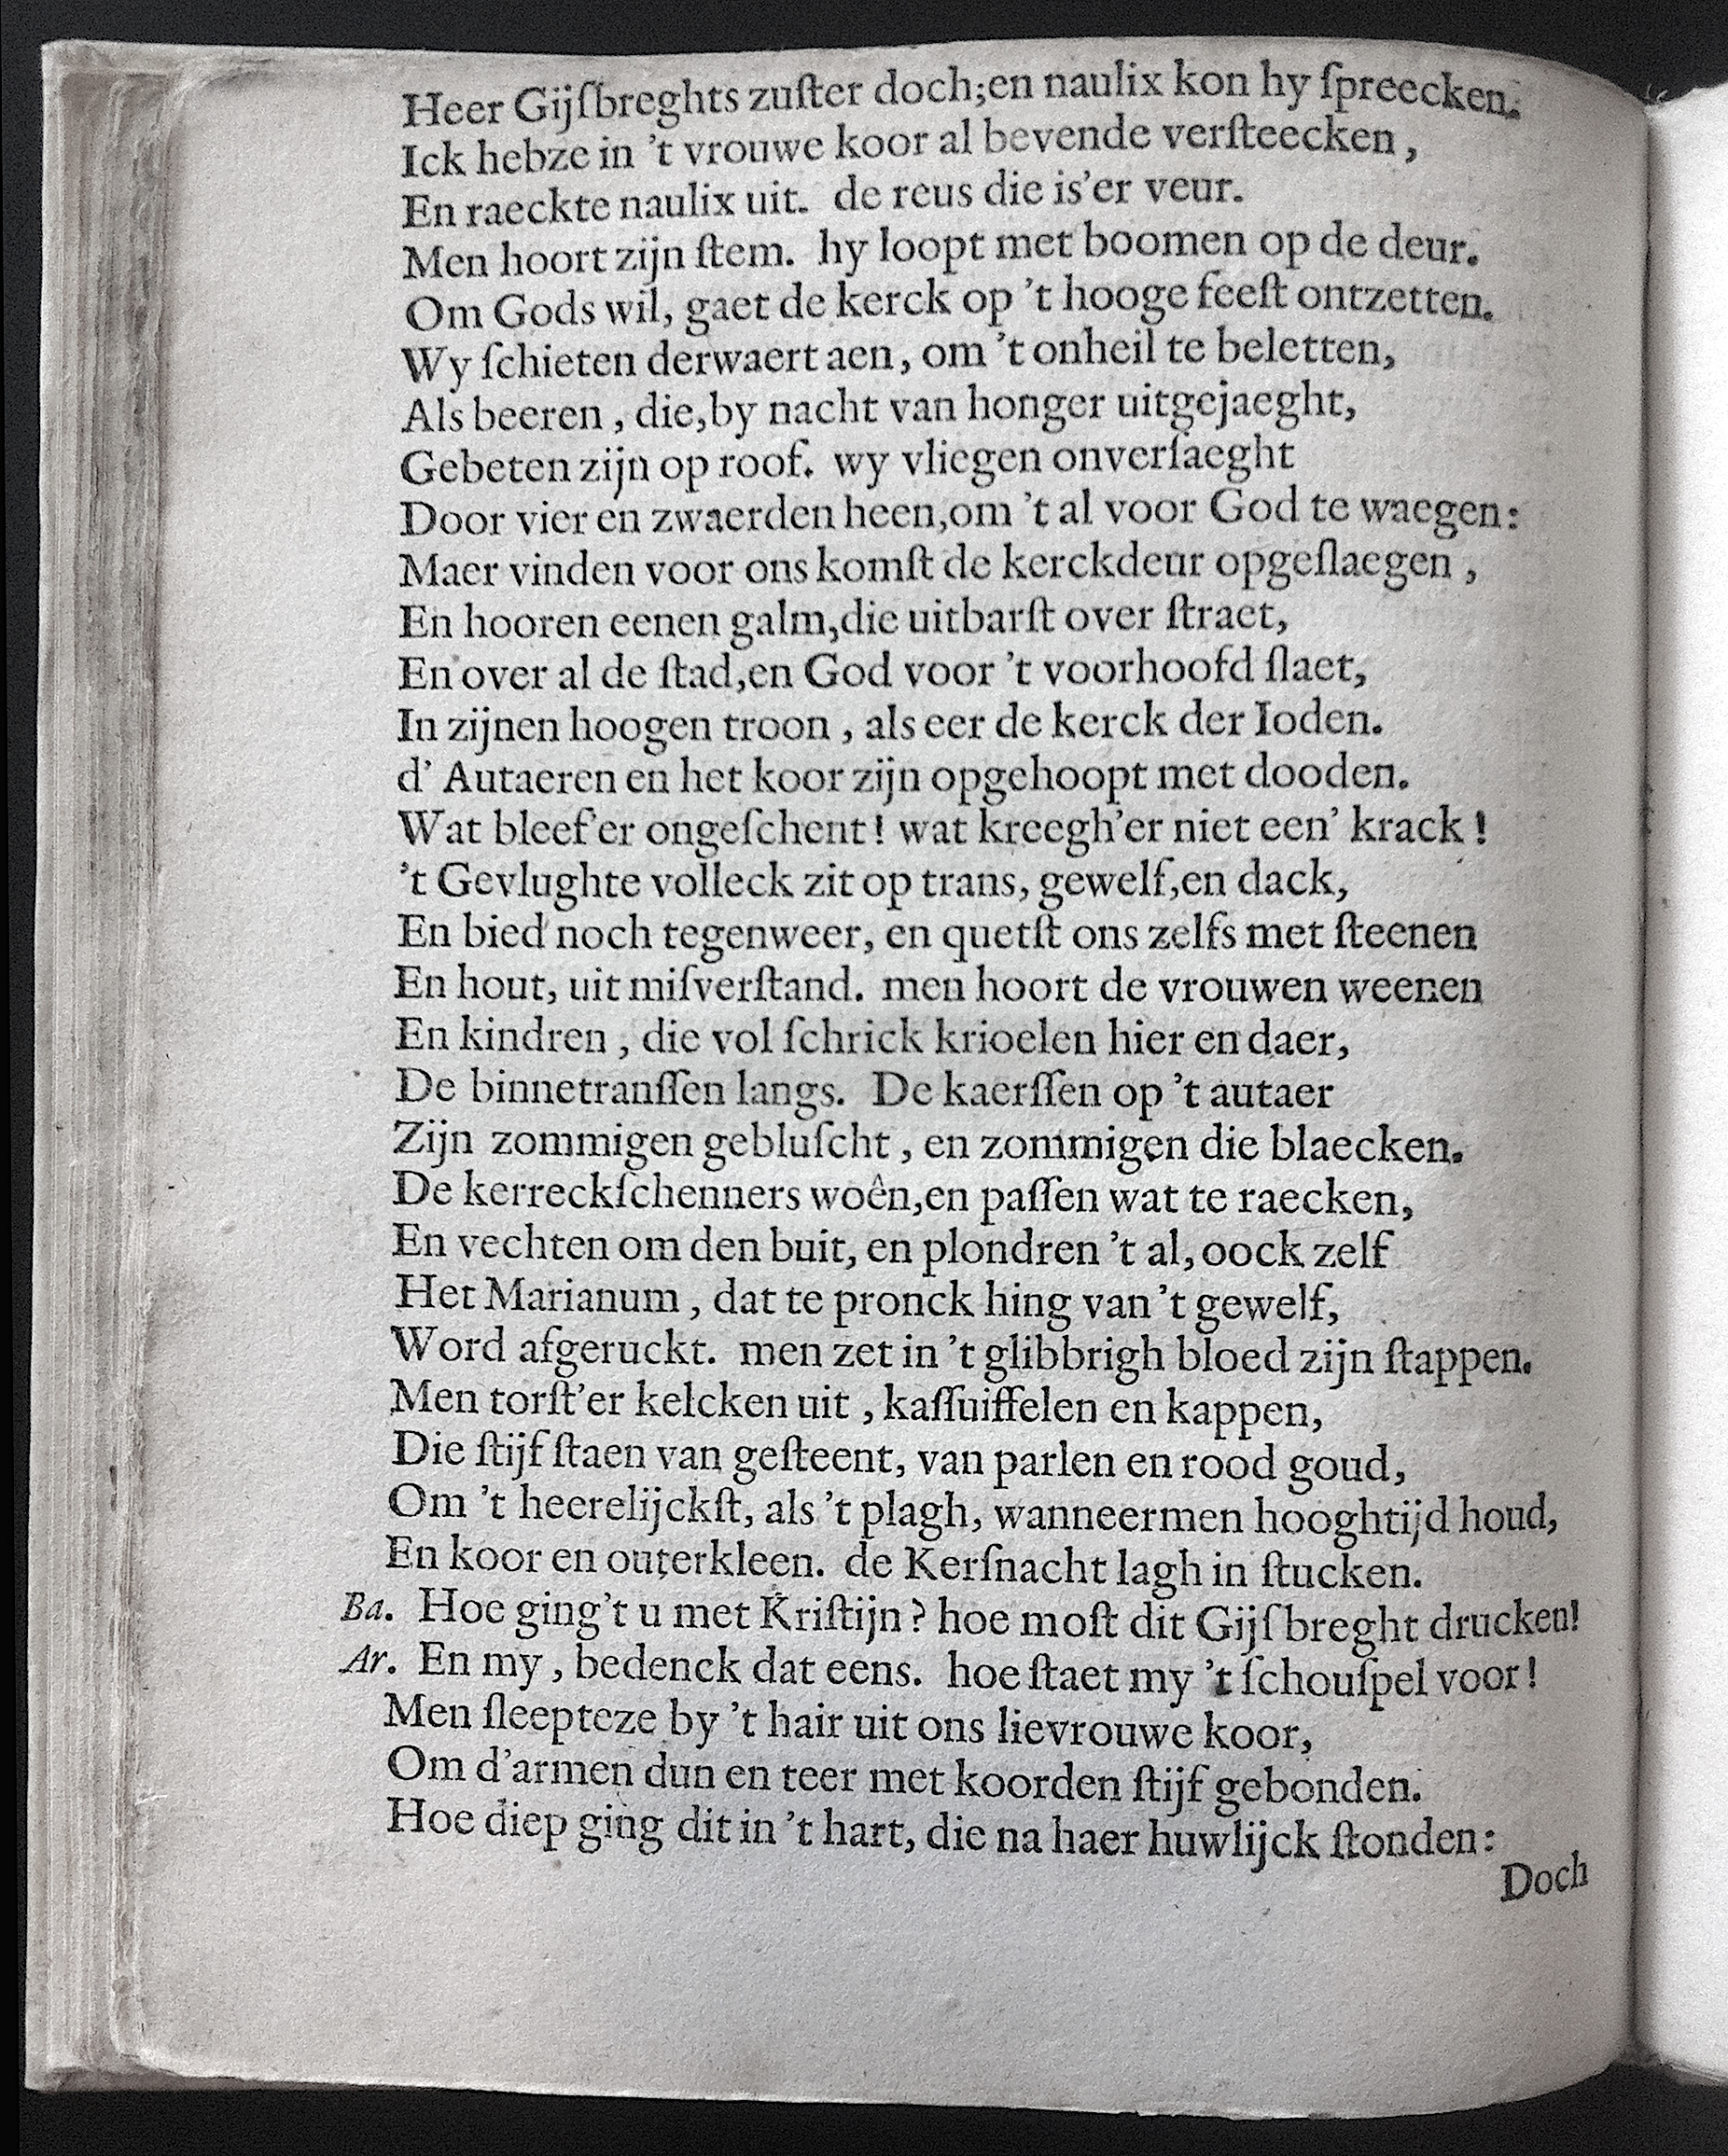 Heer Gijſbreghts zuſter doch;en naulix kon hy ſpreecken.
Ick hebze in 't vrouwe koor al bevende verſteecken ,
En raeckte naulix uit. de reus die is'er veur.
Men hoort zijn ſtem. hy loopt met boomen op de deur.
Om Gods wil, gaet de kerck op 't hooge feeſt ontzetten.
Wy ſchieten derwaert aen, om 't onheil te beletten,
Als beeren , die,by nacht van honger uitgejaeght,
Gebeten zijn op roof. wy vliegen onverſaeght
Door vier en zwaerden heen,om 't al voor God te waegen:
Maer vinden voor ons komſt de kerckdeur opgeſlaegen ,
En hooren eenen galm,die uitbarſt over ſtraet,
En over al de ſtad,en God voor 't voorhoofd ſlaet,
In zijnen hoogen troon , als eer de kerck der Ioden.
d' Autaeren en het koor zijn opgehoopt met dooden.
Wat bleef'er ongeſchent! wat kreegh'er niet een' krack !
't Gevlughte volleck zit op trans, gewelf,en dack,
En bied noch tegenweer, en quetſt ons zelfs met ſteenen
En hout, uit miſverſtand. men hoort de vrouwen weenen
En kindren , die vol ſchrick krioelen hier en daer,
De binnetranſſen langs. De kaerſſen op 't autaer
Zijn zommigen gebluſcht , en zommigen die blaecken.
De kerreckſchenners woên,en paſſen wat te raecken,
En vechten om den buit, en plondren 't al, oock zelf
Het Marianum , dat te pronck hing van 't gewelf,
Word afgeruckt. men zet in 't glibbrigh bloed zijn ſtappen.
Men torſt'er kelcken uit , kaſſuiffelen en kappen,
Die ſtijf ſtaen van geſteent, van parlen en rood goud,
Om 't heerelijckſt, als 't plagh, wanneermen hooghtijd houd,
En koor en outerkleen. de Kerſnacht lagh in ſtucken.
Ba. Hoe ging't u met Kriſtijn ? hoe moſt dit Gijſbreght drucken!
Ar. En my , bedenck dat eens. hoe ſtaet my 't ſchouſpel voor!
Men ſleepteze by 't hair uit ons lievrouwe koor,
Om d'armen dun en teer met koorden ſtijf gebonden.
Hoe diep ging dit in 't hart, die na haer huwlijck ſtonden:
Doch